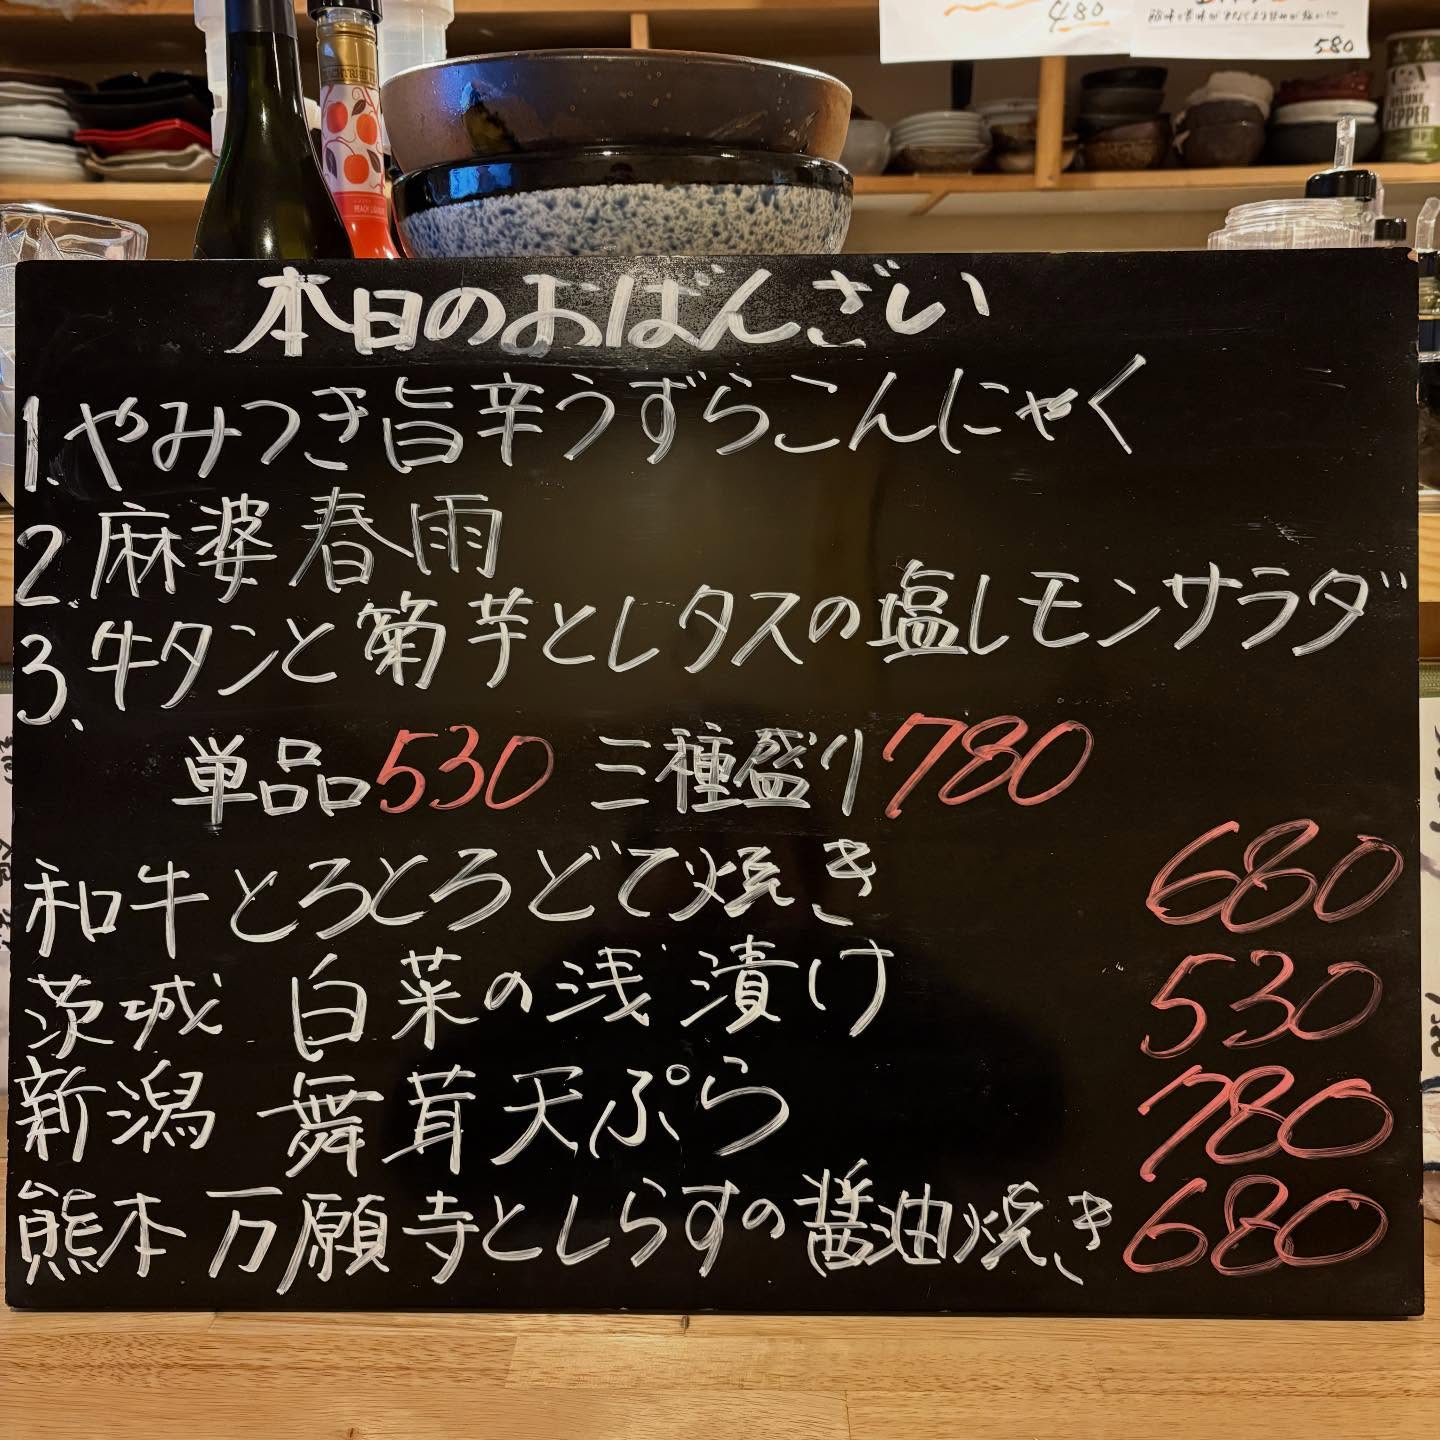 480
580
DELUXE
PEPPER
PEACH
本日のおばんざい
1.やみつき旨辛うずらこんにゃく
2.麻婆春雨
3.牛タンと菊芋とレタスの塩レモンサラダ
単品530 三種盛り780
和牛とろとろどて焼き 680
茨城 白菜の浅漬け 530
新潟 舞茸天ぷら 780
熊本 万願寺としらすの醤油焼き 680